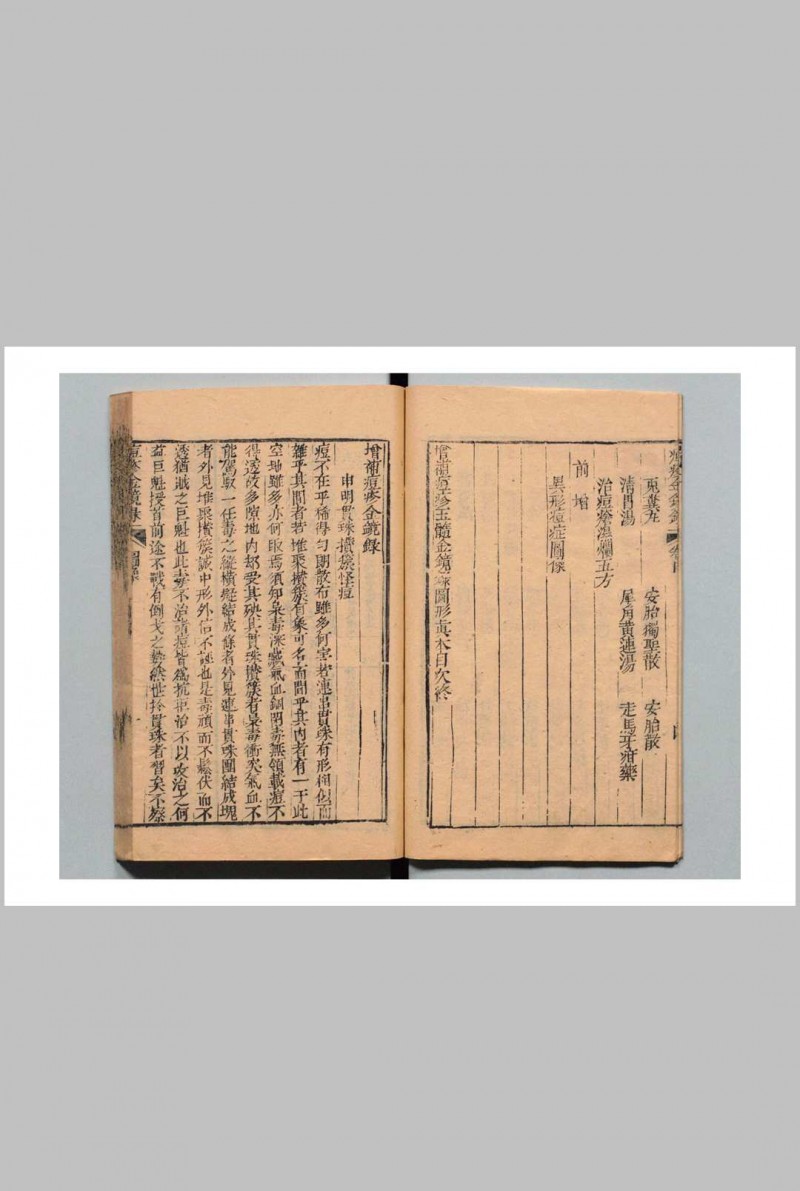 兎糞丸 安胎獨聖散 安胎散
清胃湯 犀角黃連湯 走馬牙疳藥
治痘瘵濕爛五方
前增
異形痘症圖像
增補痘疹玉髓金鏡錄圖形真本目次終
增補痘疹金鏡錄
申明貫珠攢簇怪痘
痘不在乎稀得勻朗散布雖多何害若連串貫珠有形相似而
雜乎其間者若堆聚攢簇有象可名而間乎其內者有一于此
空地雖多亦何取焉須知梟毒深藏氣血錮閉毒無領載痘不
得透故多隙地內却受其殃其貫珠攢簇者梟毒衝突氣血不
能駕馭一任毒之縱橫凝結成條者外見連串貫珠團結成塊
者外見堆聚攢簇誠中形外信不誣也是毒頑而不鬆伏而不
透猶賊之巨魁也此毒不治諸痘皆爲抗拒治不以攻治之何
益巨魁授首前途不戰有倒戈之勢然世於貫珠者習矣不察
痘疹金鏡錄 圖像 一